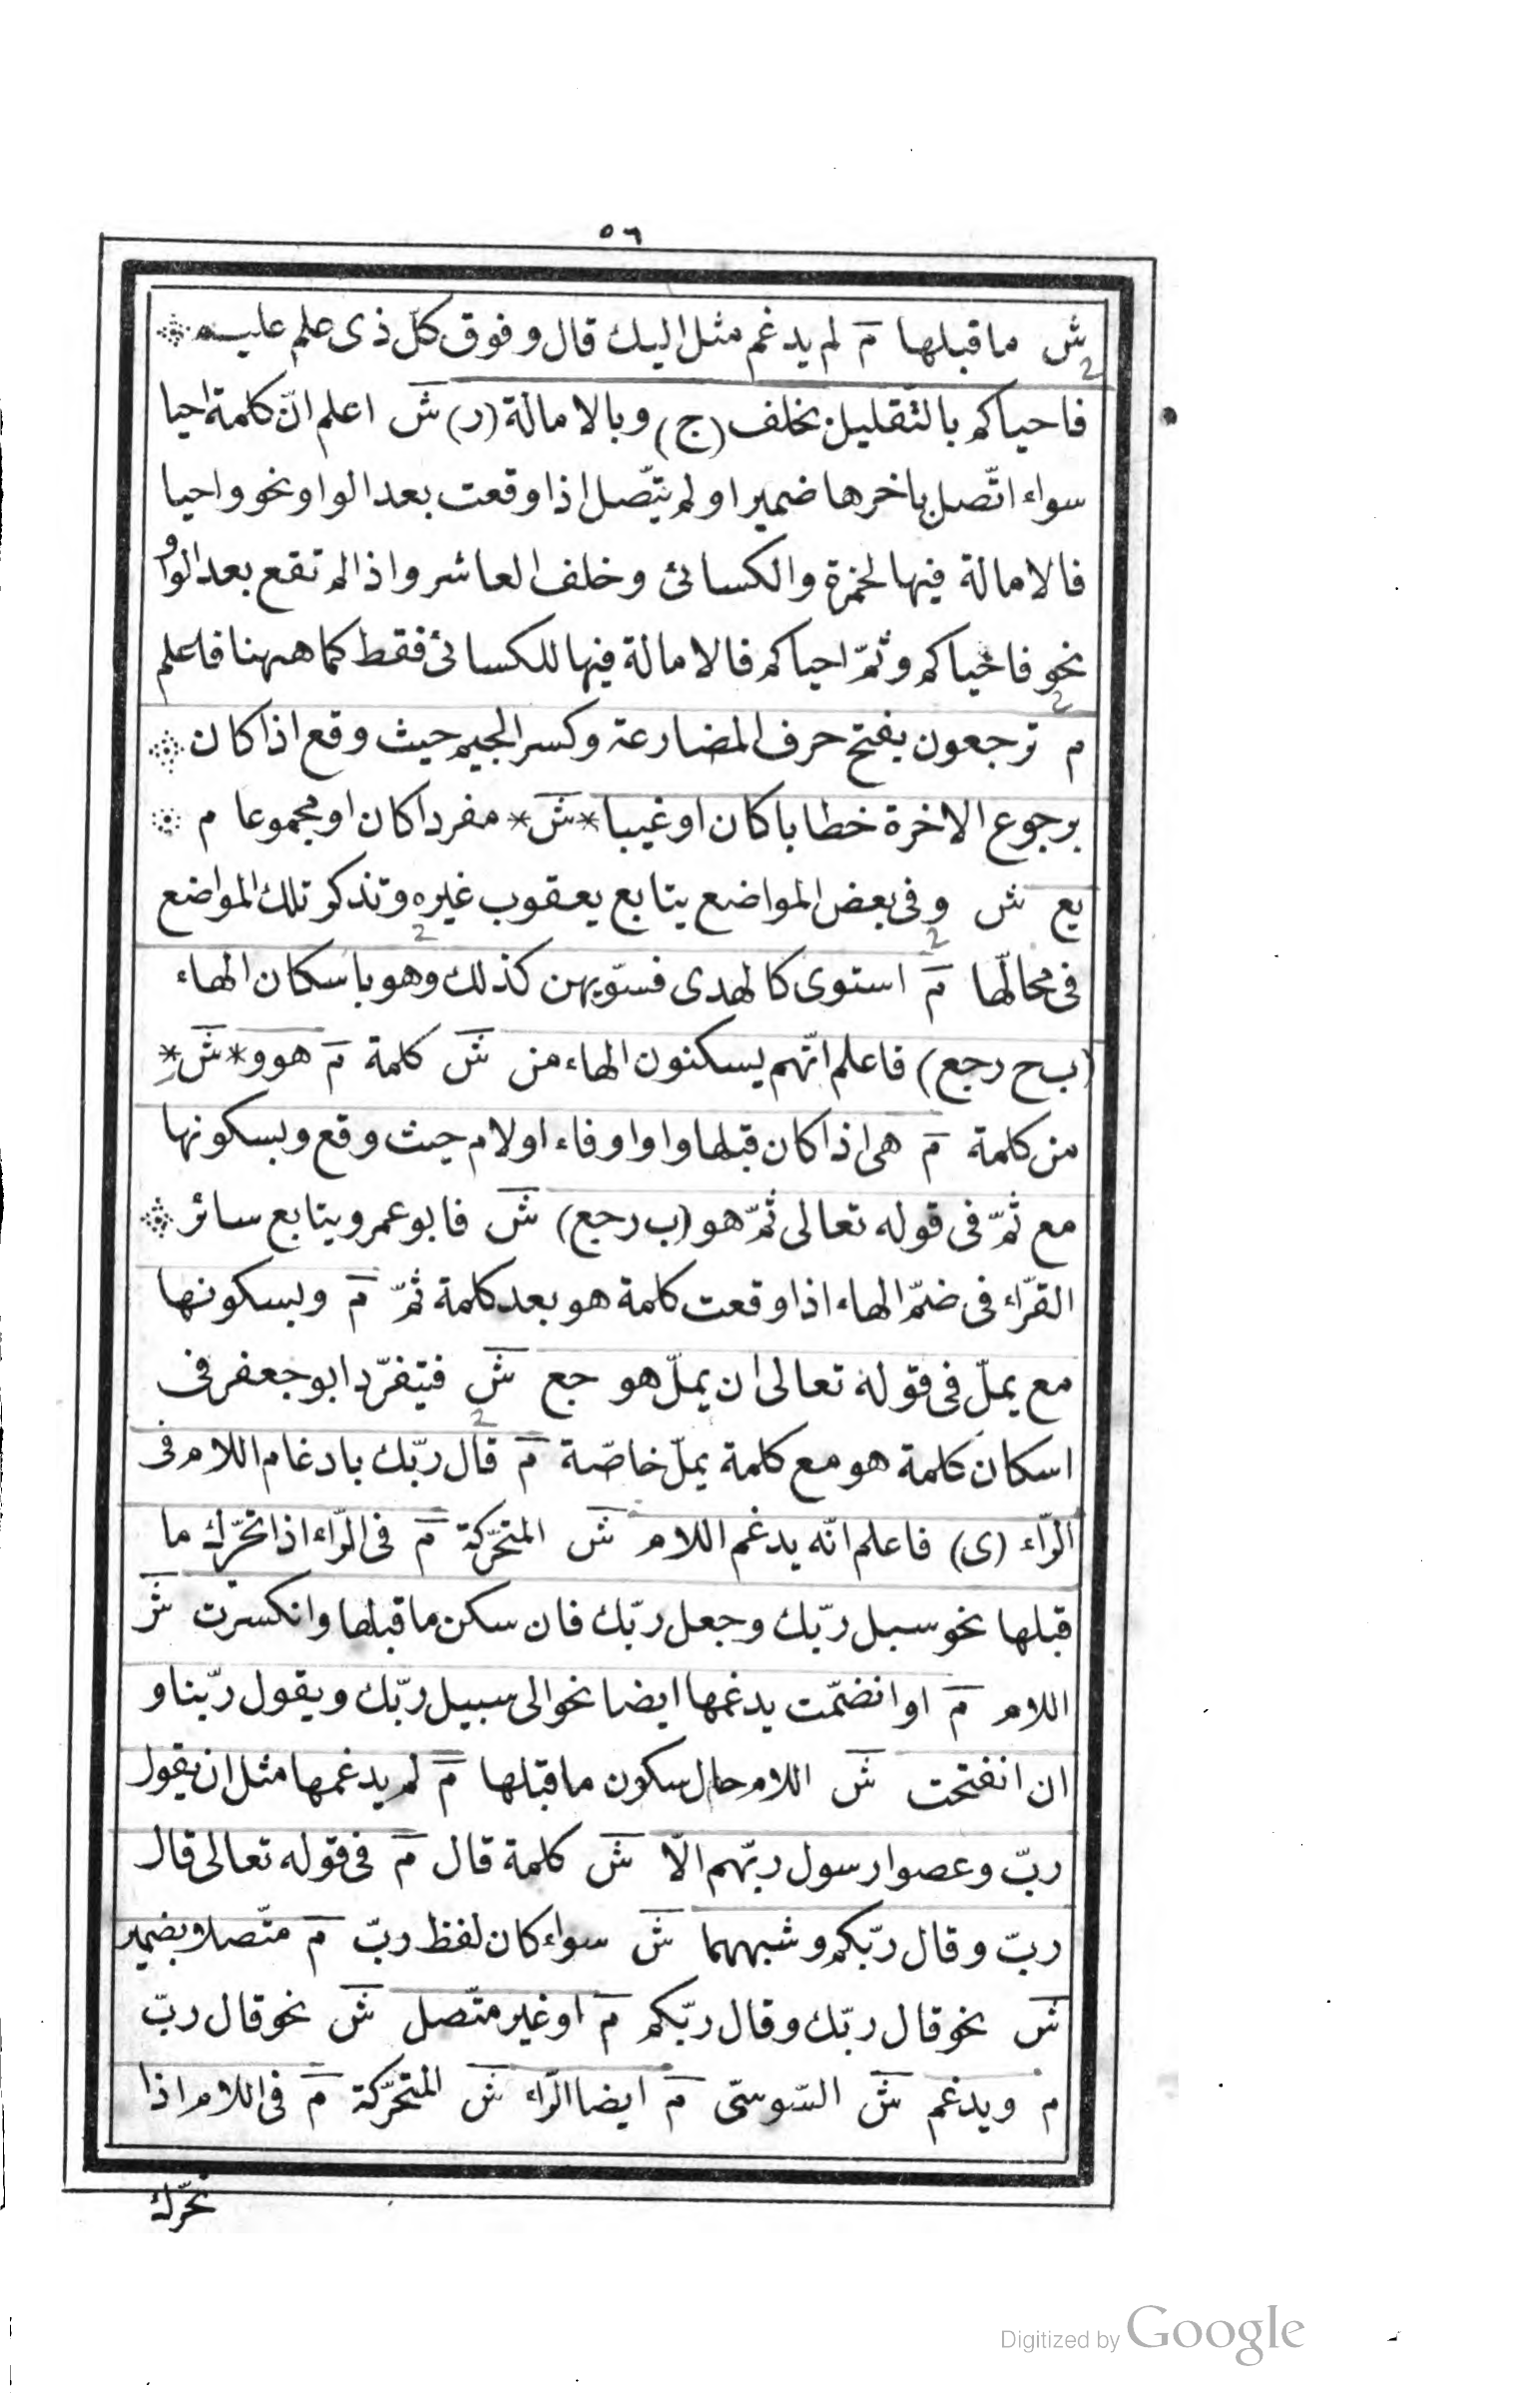 ٥٦
ش ما قبلها م لم يدغم مثل اليك قال وفوق كلّ ذى علم عليم
فاحياكم بالتّقليل بخلف (ج) وبالامالة (ر) ش اعلم انّ كلمة احيا
سواء اتّصل باخرها ضمير او لم يتّصل اذا وقعت بعد الواو نحو واحيا
فالامالة فيها لحمزة والكسائى وخلف العاشر واذا لم تقع بعد الواو
نحو فاحياكم وثمّ احياكم فالامالة فيها للكسائى فقط كما ههنا فاعلم
م ترجعون بفتح حرف المضارعة وكسر الجيم حيث وقع اذا كان
برجوع الاخرة خطابا كان او غيبا *ش* مفردا كان او مجموعا م
يع ش وفى بعض المواضع يتابع يعقوب غيره وتذكر تلك المواضع
فى محالّها م استوى كالهدى فسوّيهن كذلك وهو باسكان الهاء
(ب ح ر جع) فاعلم انّهم يسكنون الهاء من ش كلمة م هو و *ش*
من كلمة م هى اذا كان قبلها واو او فاء او لام حيث وقع وبسكونها
مع ثمّ فى قوله تعالى ثمّ هو (ب ر جع) ش فابو عمرو يتابع سائر
القرّاء فى ضمّ الهاء اذا وقعت كلمة هو بعد كلمة ثمّ م وبسكونها
مع يملّ فى قوله تعالى ان يملّ هو جع ش فيتفرّد ابو جعفر فى
اسكان كلمة هو مع كلمة يملّ خاصّة م قال ربّك بادغام اللام فى
الرّاء (ى) فاعلم انّه يدغم اللام ش المتحرّكة م فى الرّاء اذا تحرّك ما
قبلها نحو سبل ربّك وجعل ربّك فان سكن ما قبلها وانكسرت ش
اللام م او انضمّت يدغمها ايضا نحو الى سبيل ربّك ويقول ربّنا و
ان انفتحت ش اللام حال سكون ما قبلها م لم يدغمها مثل ان يقول
ربّ وعصوا رسول ربّهم الّا ش كلمة قال م فى قوله تعالى قال
ربّ وقال ربّكم وشبههما ش سواء كان لفظ ربّ م متّصلا بضمير
ش نحو قال ربّك وقال ربّكم م او غير متّصل ش نحو قال ربّ
م ويدغم ش السّوسىّ م ايضا الرّاء ش المتحرّكة م فى اللام اذا
تحرّك
Digitized by Google